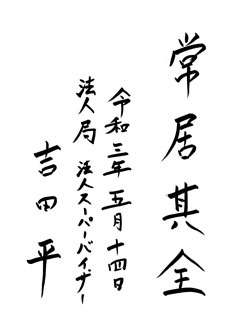 常居其全
令和三年五月十四日
法人局 法人スーパーバイザー
吉田平